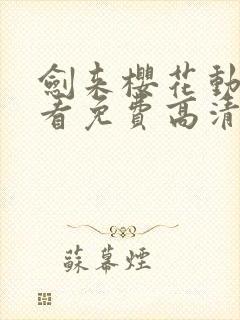 劍来櫻花動
看免費高清
蘇幕煙